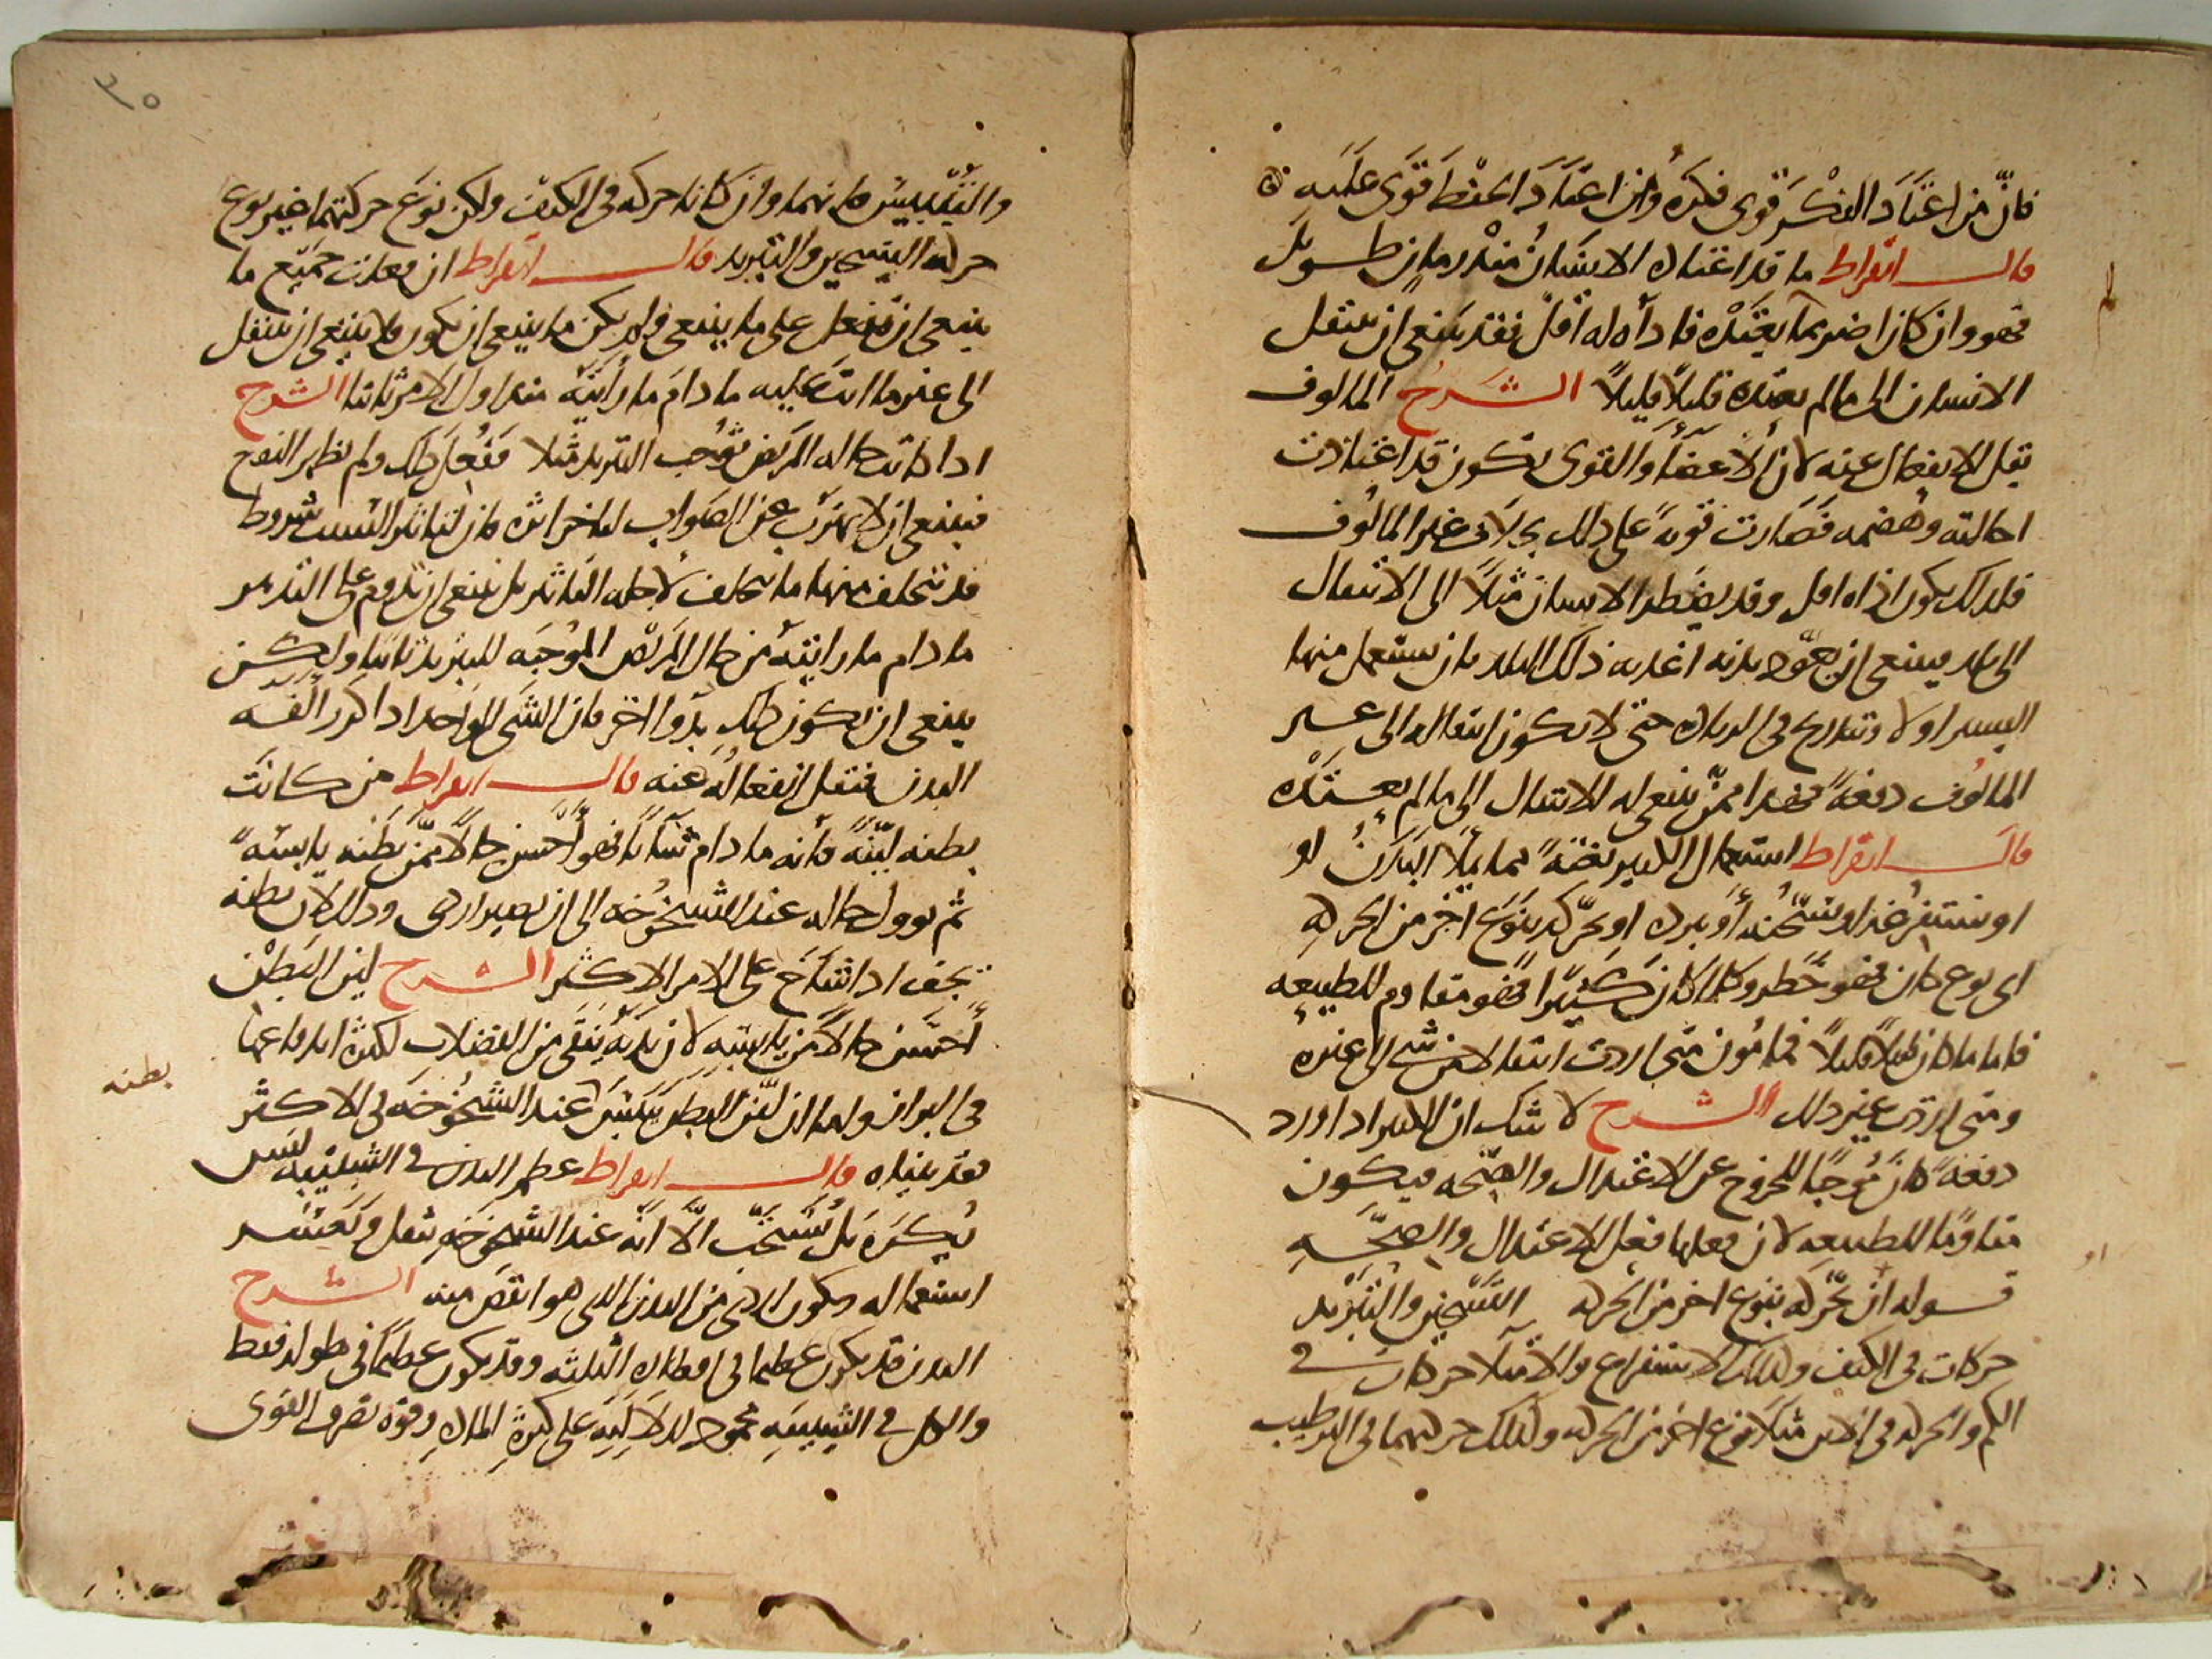 فان من اعتاد الفكر قوى فكره ومن اعتاد الحفظ قوى عليه
قال ابقراط ما قد اعتاده الانسان منذ زمان طويل
فهو وان كان اضر مما لم يعتده فاذاه له اقل فقد ينبغى ان ينتقل
الانسان الى ما لم يعتده قليلا قليلا الشرح المالوف
يقل الانفعال عنه لان الاعضا والقوى تكون قد اعتادت
احالته وهضمه فصارت قوية على ذلك بخلاف غير المالوف
فلذلك يكون اذاه اقل وقد يضطر الانسان مثلا الى الانتقال
الى بلد فينبغى ان يعود بدنه اغذيه ذلك البلد بان يستعمل منها
اليسير اولا ويتدرج فى الزياده حتى لا يكون انتقاله الى غير
المالوف دفعة فهذا ممن ينبغى له الانتقال الى ما لم يعتده
قال ابقراط استعمال الكثير بغتة مما يملا البدن او
او يستفرغه او يسخنه او يبرده او يحركه بنوع اخر من الحركه
اى نوع كان فهو خطر وكلما كان كثيرا فهو مقاوم للطبيعه
فاما ما كان قليلا قليلا فمامون متى اردت انتقالا من شى الى غيره
ومتى اردت غير ذلك الشرح لا شك ان الكثير اذا ورد
دفعة كان موجبا للخروج عن الاعتدال والصحه فيكون
مقاوما للطبيعه لان فعلها فعل الاعتدال والصحه
قوله ان يحركه بنوع اخر من الحركه التسخين والتبريد
حركات فى الكيف وكذلك الاستفراغ والامتلا حركات فى
الكم والحركه فى الاين مثلا نوع اخر من الحركه وكذلك حركتهما فى الترطيب
او
٣٥
والتيبيس فانهما وان كانا حركه فى الكيف ولكن نوع حركتهما غير نوع
حركه التسخين والتبريد قال ابقراط ان فعلت جميع ما
ينبغى ان تفعل على ما ينبغى فلم يكن ما ينبغى ان يكون فلا ينبغى ان تنتقل
الى غير ما انت عليه ما دام ما رايته منذ اول الامر ثابتا الشرح
اذا كانت حاله المريض توجب التبريد مثلا ففعل ذلك ولم يظهر النفع
فينبغى ان لا يهرب عن الصواب
قد تتخلف منها ما يتخلف لاجله التاثير بل ينبغى ان تدوم على التدبير
ما دام ما رايته من حال المريض الموجبه للتبريد ثابتا وليكن
ينبغى ان يكون ذلك بدوا اخر فان الشى الواحد اذا كرر الفه
البدن فتقل انفعاله عنه قال ابقراط من كانت
بطنه لينة فانه ما دام شابا فهو احسن حالا ممن بطنه يابسة
ثم يوول حاله عند الشيخوخه الى ان يصير اردى وذلك لان بطنه
تجف اذا شاخ على الامر الاكثر الشرح لين البطن
احسن حالا من يابسته لان بدنه ينقى من الفضلات لكثرة اندفاعها
فى البراز ولما ان لين البطن ييبس عند الشيخوخه فى الاكثر
بطنه
فقد بيناه قال ابقراط عظم البدن فى الشبيبه ليس
يكره بل يستحب الا انه عند الشيخوخه يثقل ويعسر
استعماله ويكون اردى من البدن الذى هو انقص منه الشرح
البدن قد يكون عظيما فى اقطاره الثلثه وقد يكون عظيما فى طوله فقط
والكل فى الشبيبه محمود لدلالته على كثرة الماده وقوة تصرف القوى